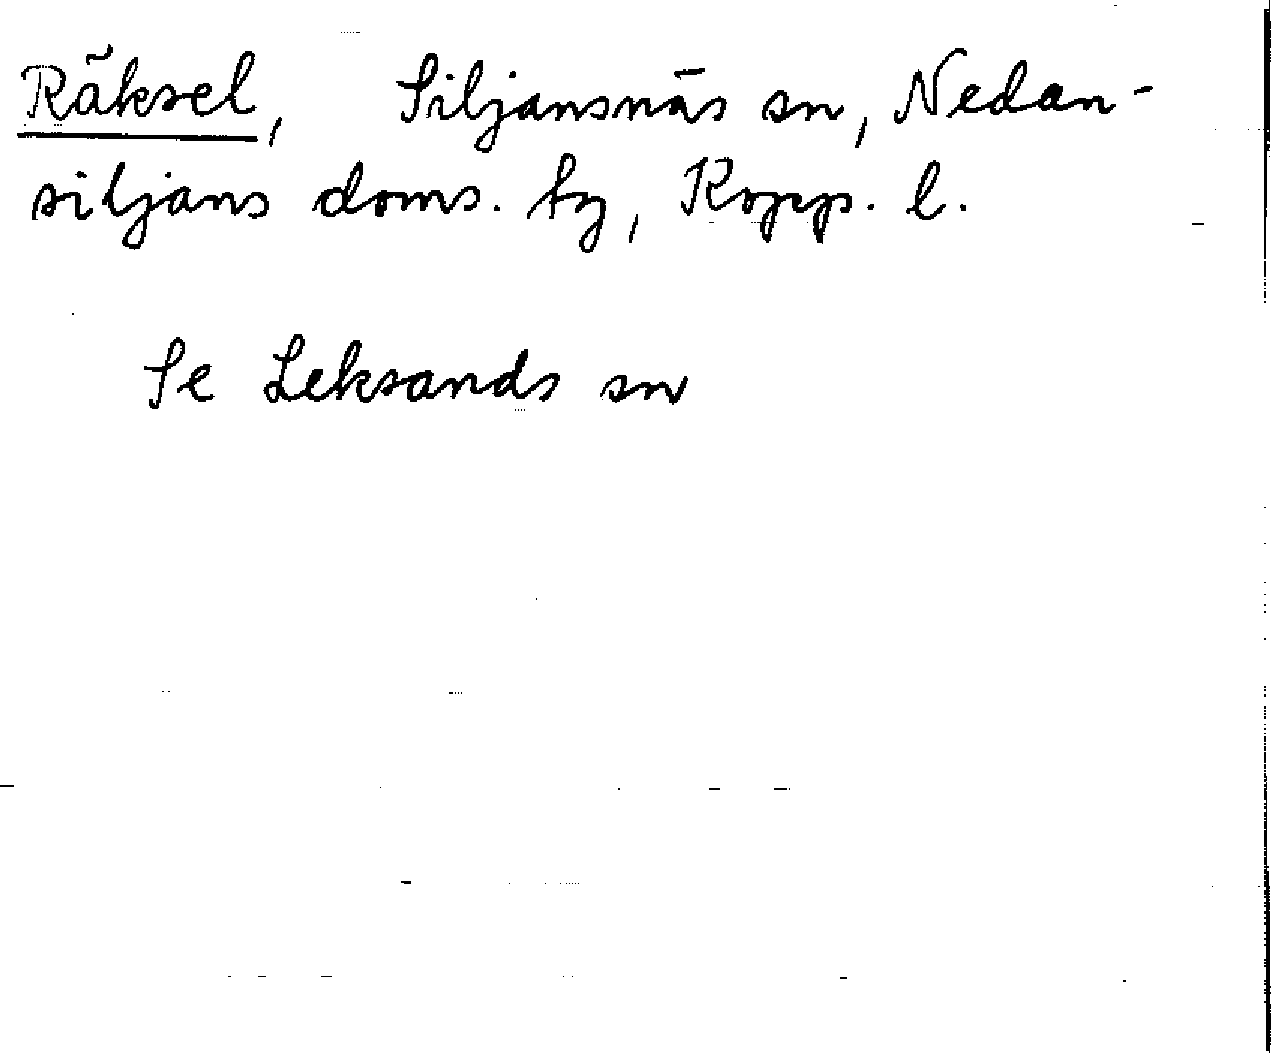 Räksel, Siljansnäs sn, Nedan-
siljans doms. fg, Kopp. l.
Se Leksands sn